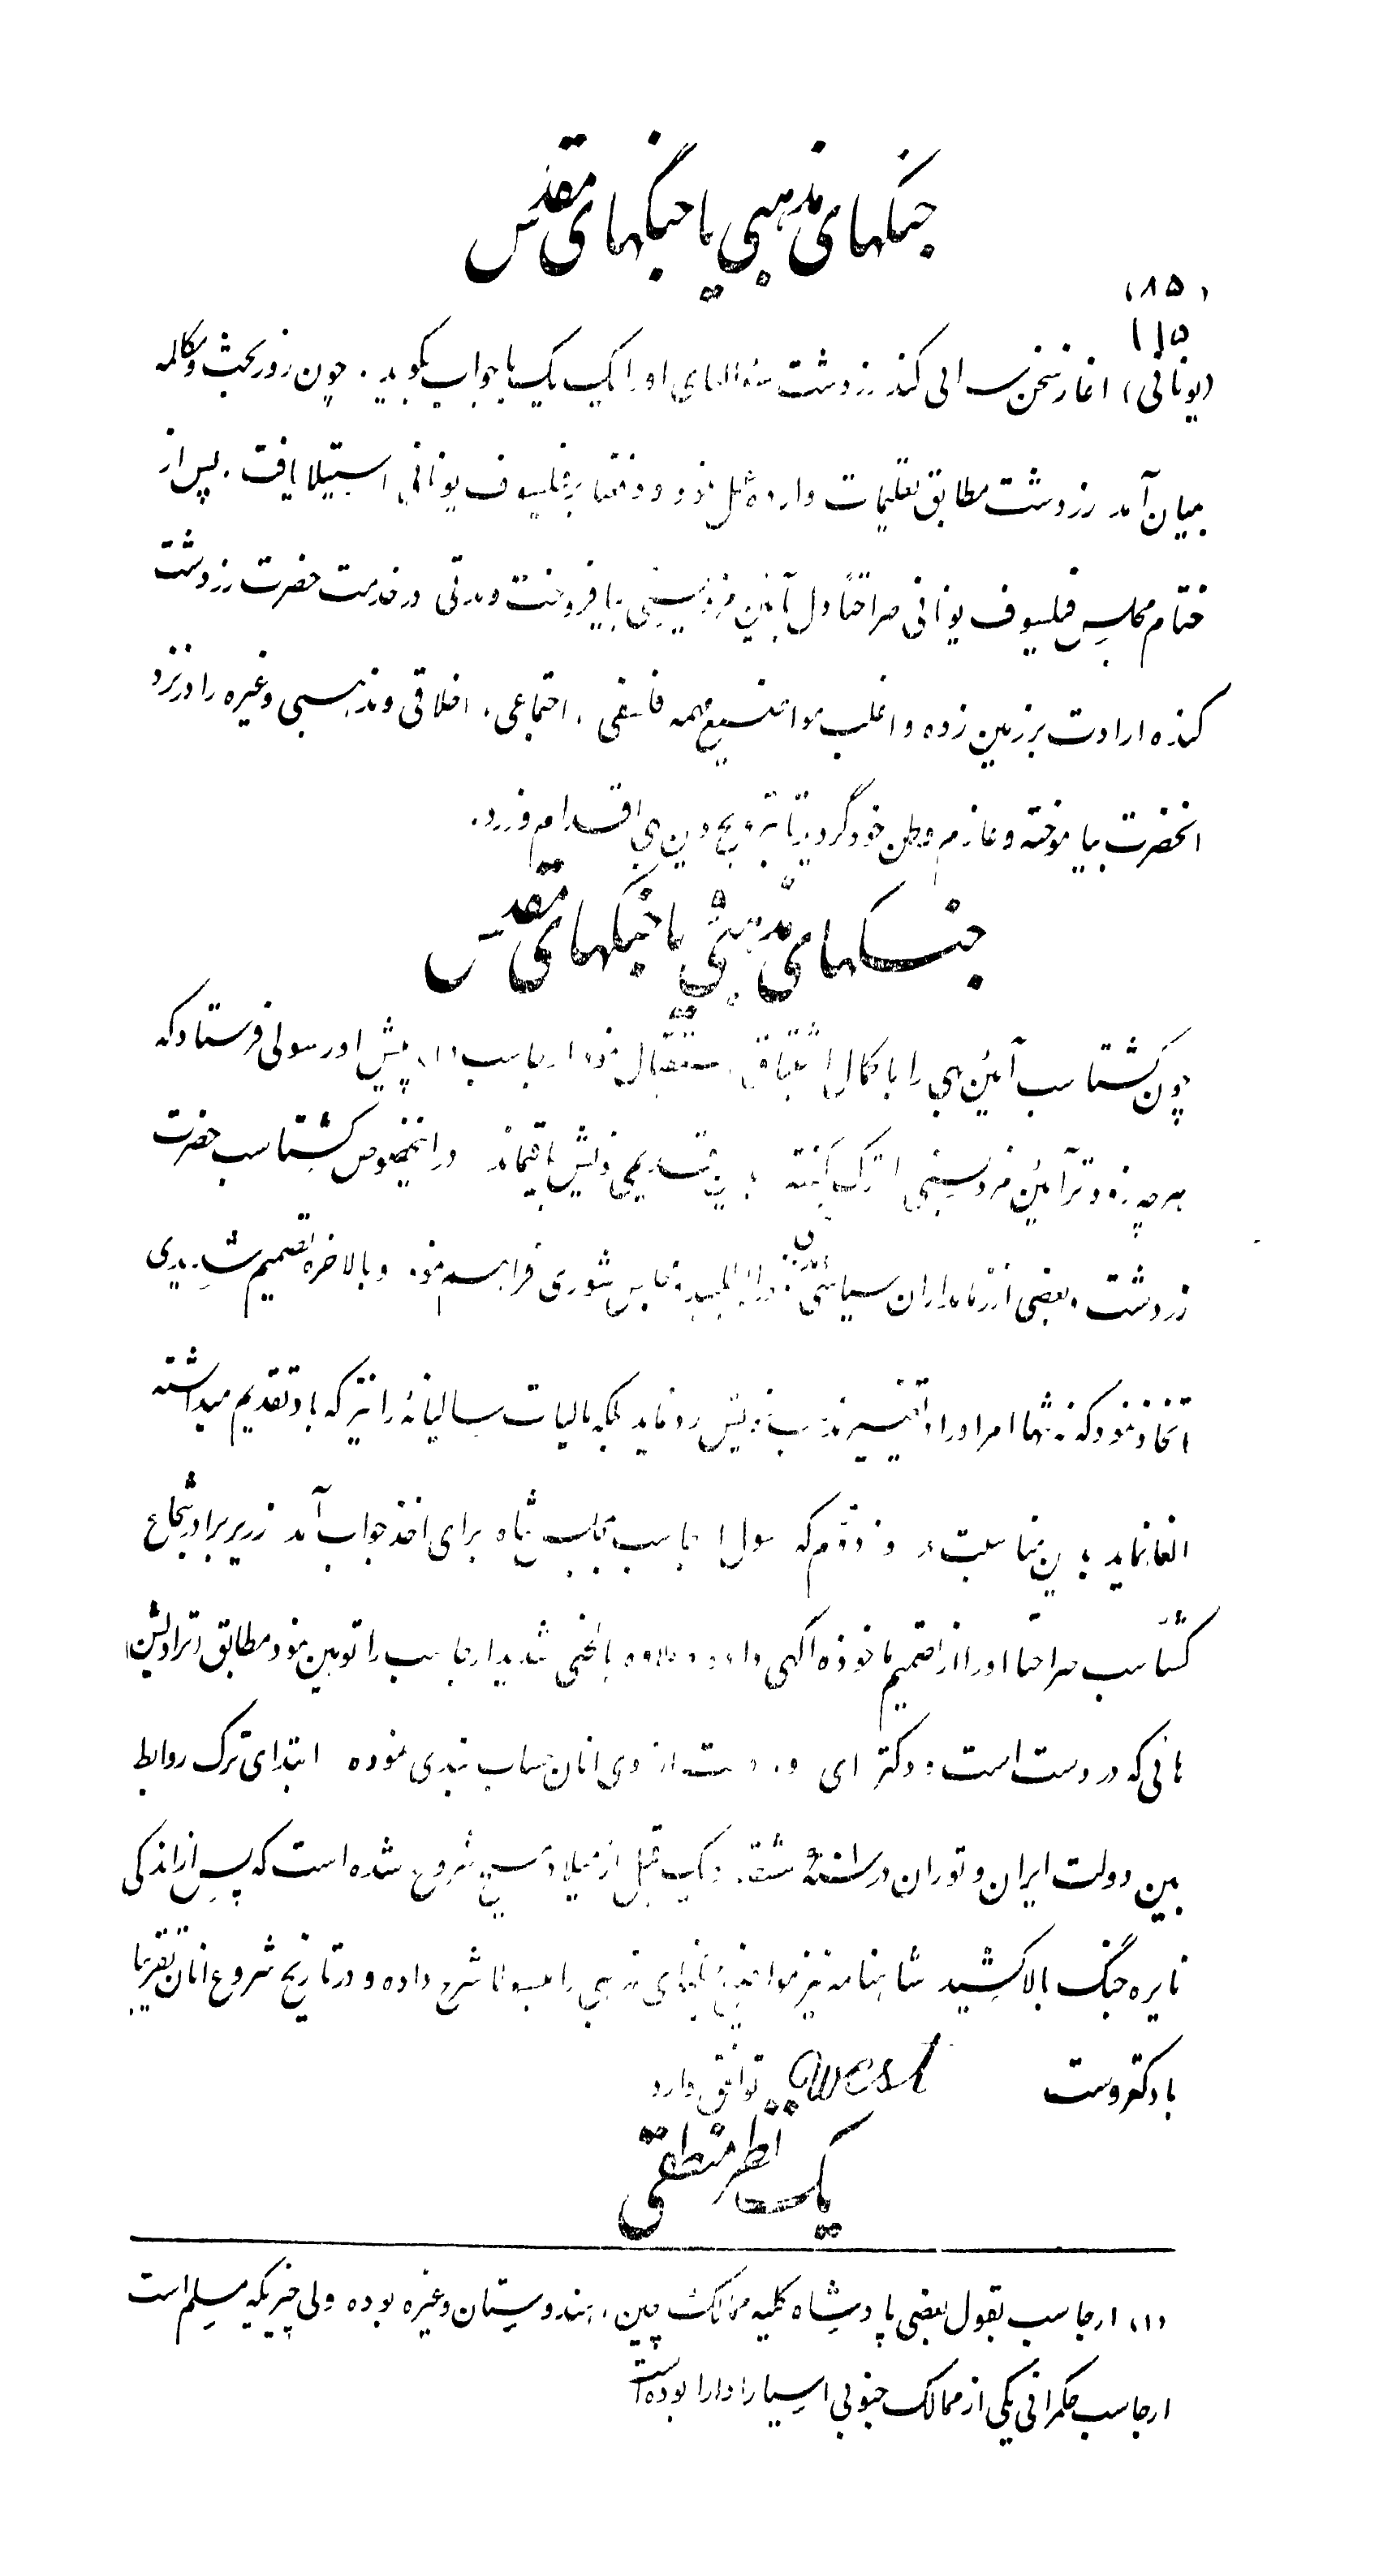 جنگهای مذهبی یا جنگهای مقدس
(۸۵)
۱۱۵
(یونانی) آغاز سخن سرائی کند زردشت سئوالهای او را یک یک با جواب بگوید. چون روز بحث و مکالمه
بمیان آمد زردشت مطابق تعلیمات وارده عمل نمود و دفعتا بر فیلسوف یونانی استیلا یافت. پس از
ختام مجلس فیلسوف یونانی صراحتاً دل بآئین مزدیسنی بیافروخت و مدتی در خدمت حضرت زردشت
کنده ارادت بر زمین زده و اغلب مواضیع مهمه فلسفی، اجتماعی، اخلاقی و مذهبی و غیره را در نزد
انحضرت بیاموخته و عازم وطن خود گردید تا بترویج دین بهی اقدام ورزد.
جنگهای مذهبی یا جنگهای مقدس
چون گشتاسب آئین بهی را با کمال اشتیاق استقبال نمود ارجاسب (۱) پیش او رسولی فرستاد که
هر چه زودتر آئین مزدیسنی را ترک گفته بدین قدیمی خویش باقیماند در اینخصوص گشتاسب حضرت
زردشت و بعضی از زمامداران سیاسی را طلبیده مجلس شوری فراهم نمود و بالاخره تصمیم شدیدی
اتخاذ نمود که نه تنها امر او را در تغییر مذهب خویش رد نماید بلکه مالیات سالیانهٔ را نیز که باو تقدیم میداشته
الغا نماید باین مناسبت روز دوم که رسول ارجاسب بمجلس شاه برای اخذ جواب آمد زریر برادر شجاع
گشتاسب صراحتا او را از تصمیم ماخوذه آگهی داد و علاوه با لحنی شدید ارجاسب را توهین نمود مطابق (ترادیشن)
هائی که در دست است و دکتر ای و. وست از روی انان حساب بندی نموده ابتدای ترک روابط
بین دولت ایران و توران در سنهٔ ششصد و یک قبل از میلاد مسیح شروع شده است که پس از اندکی
نایره جنگ بالا کشید شاهنامه نیز مواضیع جنگهای مذهبی را مبسوطا شرح داده و در تاریخ شروع انان تقریبا
با دکتر وست West توافق دارد
یک نظر منطقی
(۱) ارجاسب بقول بعضی پادشاه کلیه ممالک چین، هندوستان و غیره بوده ولی چیزیکه مسلم است
ارجاسب حکمرانی یکی از ممالک جنوبی اسیا را دارا بوده است